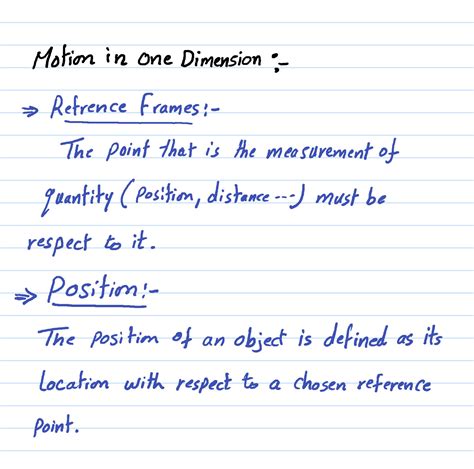 Motion in one Dimension :-
⇒ Refrence Frames:-
The point that is the measurement of
quantity (position, distance ---) must be
respect to it.
⇒ Position:-
The position of an object is defined as its
location with respect to a chosen reference
point.